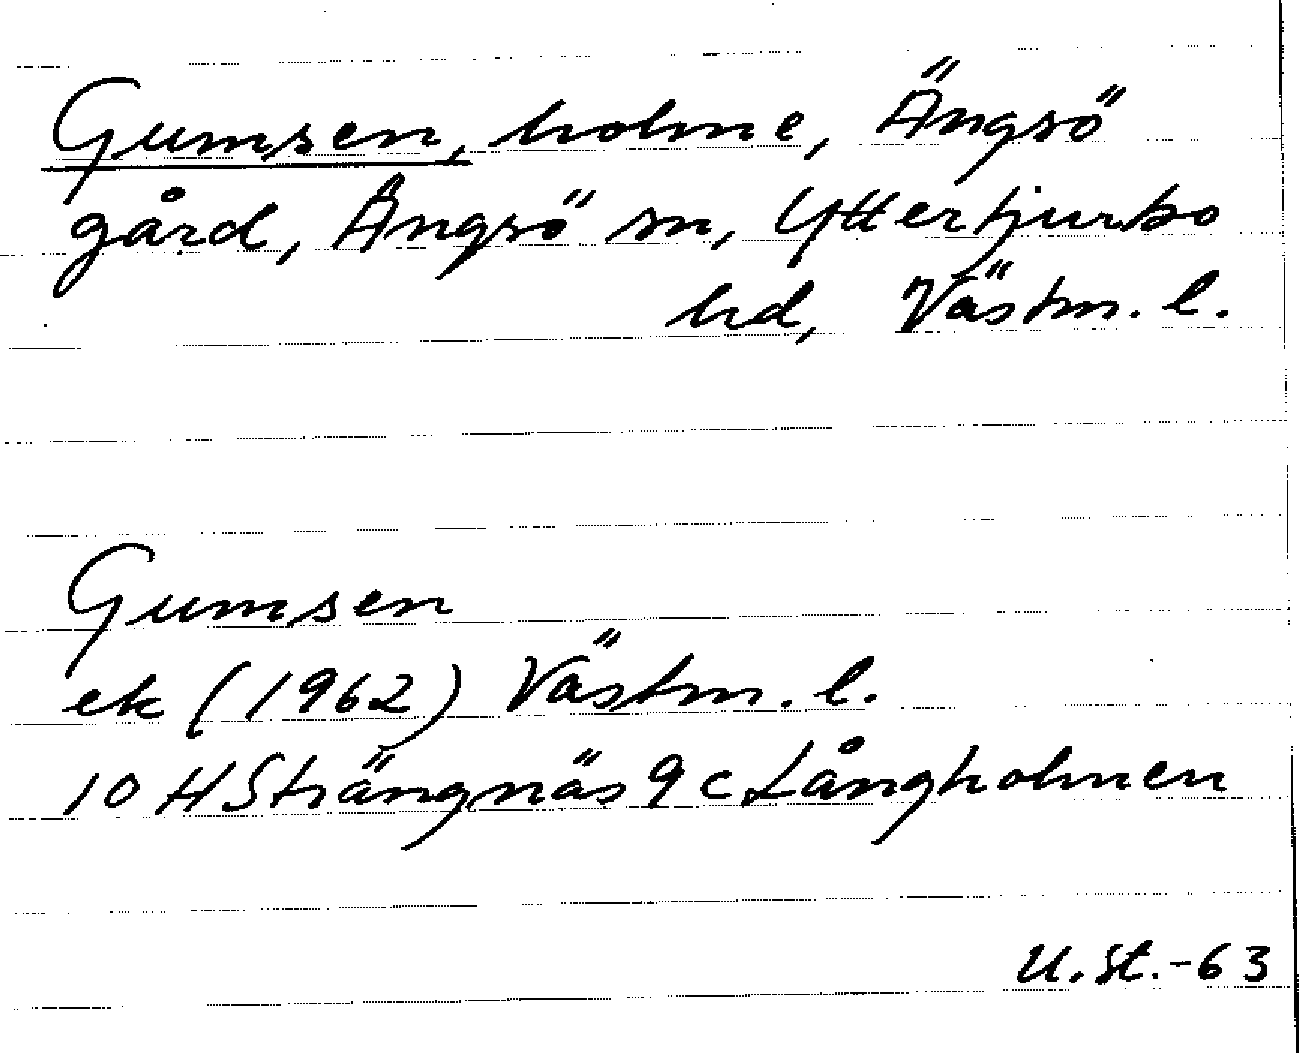 Gumsen, holme, Ängsö
gård, Ängsö sn, Yttertjurbo
hd, Västm. l.
Gumsen
ek (1962) Västm. l.
10 H Strängnäs 9 c Långholmen
U. St. -63